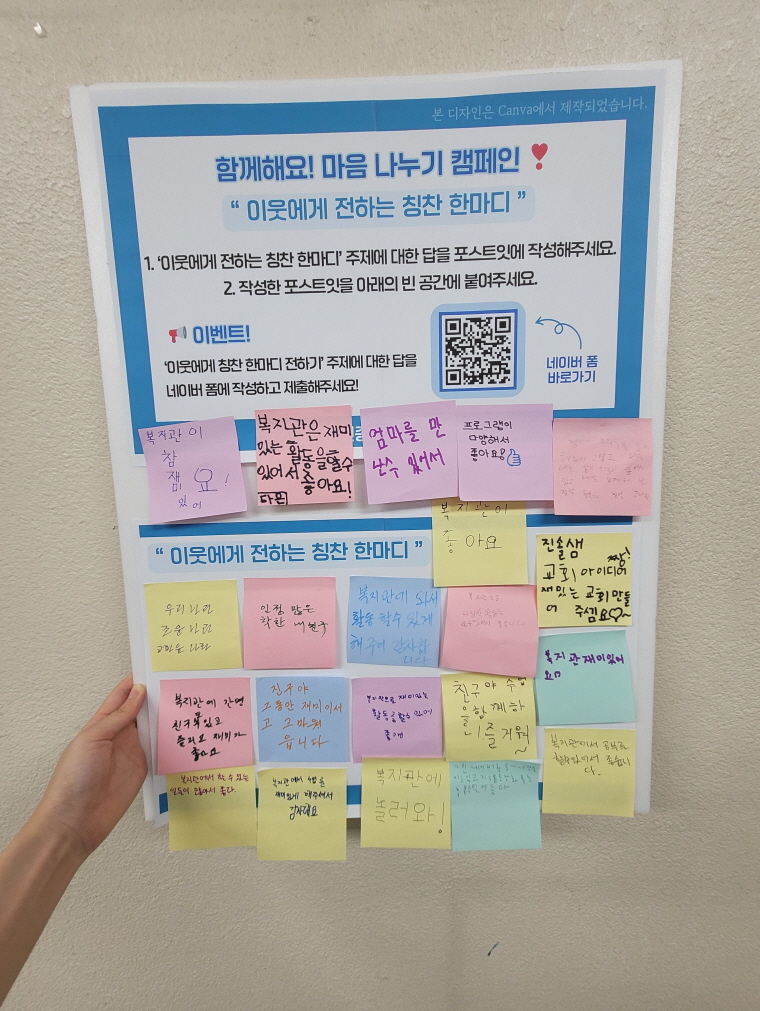 본 디자인은 Canva에서 제작되었습니다.
함께해요! 마음 나누기 캠페인
“ 이웃에게 전하는 칭찬 한마디 ”
1. ‘이웃에게 전하는 칭찬 한마디’ 주제에 대한 답을 포스트잇에 작성해주세요.
2. 작성한 포스트잇을 아래의 빈 공간에 붙여주세요.
이벤트!
‘이웃에게 칭찬 한마디 전하기’ 주제에 대한 답을
네이버 폼에 작성하고 제출해주세요!
네이버 폼
바로가기
복지관이
참
잼
있어
요!
복지관은 재미
있는 활동을 할수
있어서 좋아요!
다온
엄마를 만
난수 있어서
프로그램이
다양해서
좋아요!
복지관이
좋아요
“ 이웃에게 전하는 칭찬 한마디 ”
진솔샘
짱!
교회 아이디어
재밌는 교회 만들
어 주셈요
인정 많은
착한 내 친구
복지관에 와서
활동 할수 있게
해주어 감사합
니다
복지관 재미있어
요
복지관에 가면
친구도 있고
즐겁고 재미가
좋아요
친구야
그동안 재미이서
고 고마웠
읍니다
복지관으로 재미있는
활동을 할수 있어
좋아
친구야 수업
을 함께하
니 즐거워
복지관에서 할 수 있는
복지관에서 수업을
재미있게 해주셔서
감사해요
복지관에
놀러와!
복지관에서 공부를
할수있어서 좋습니
다.